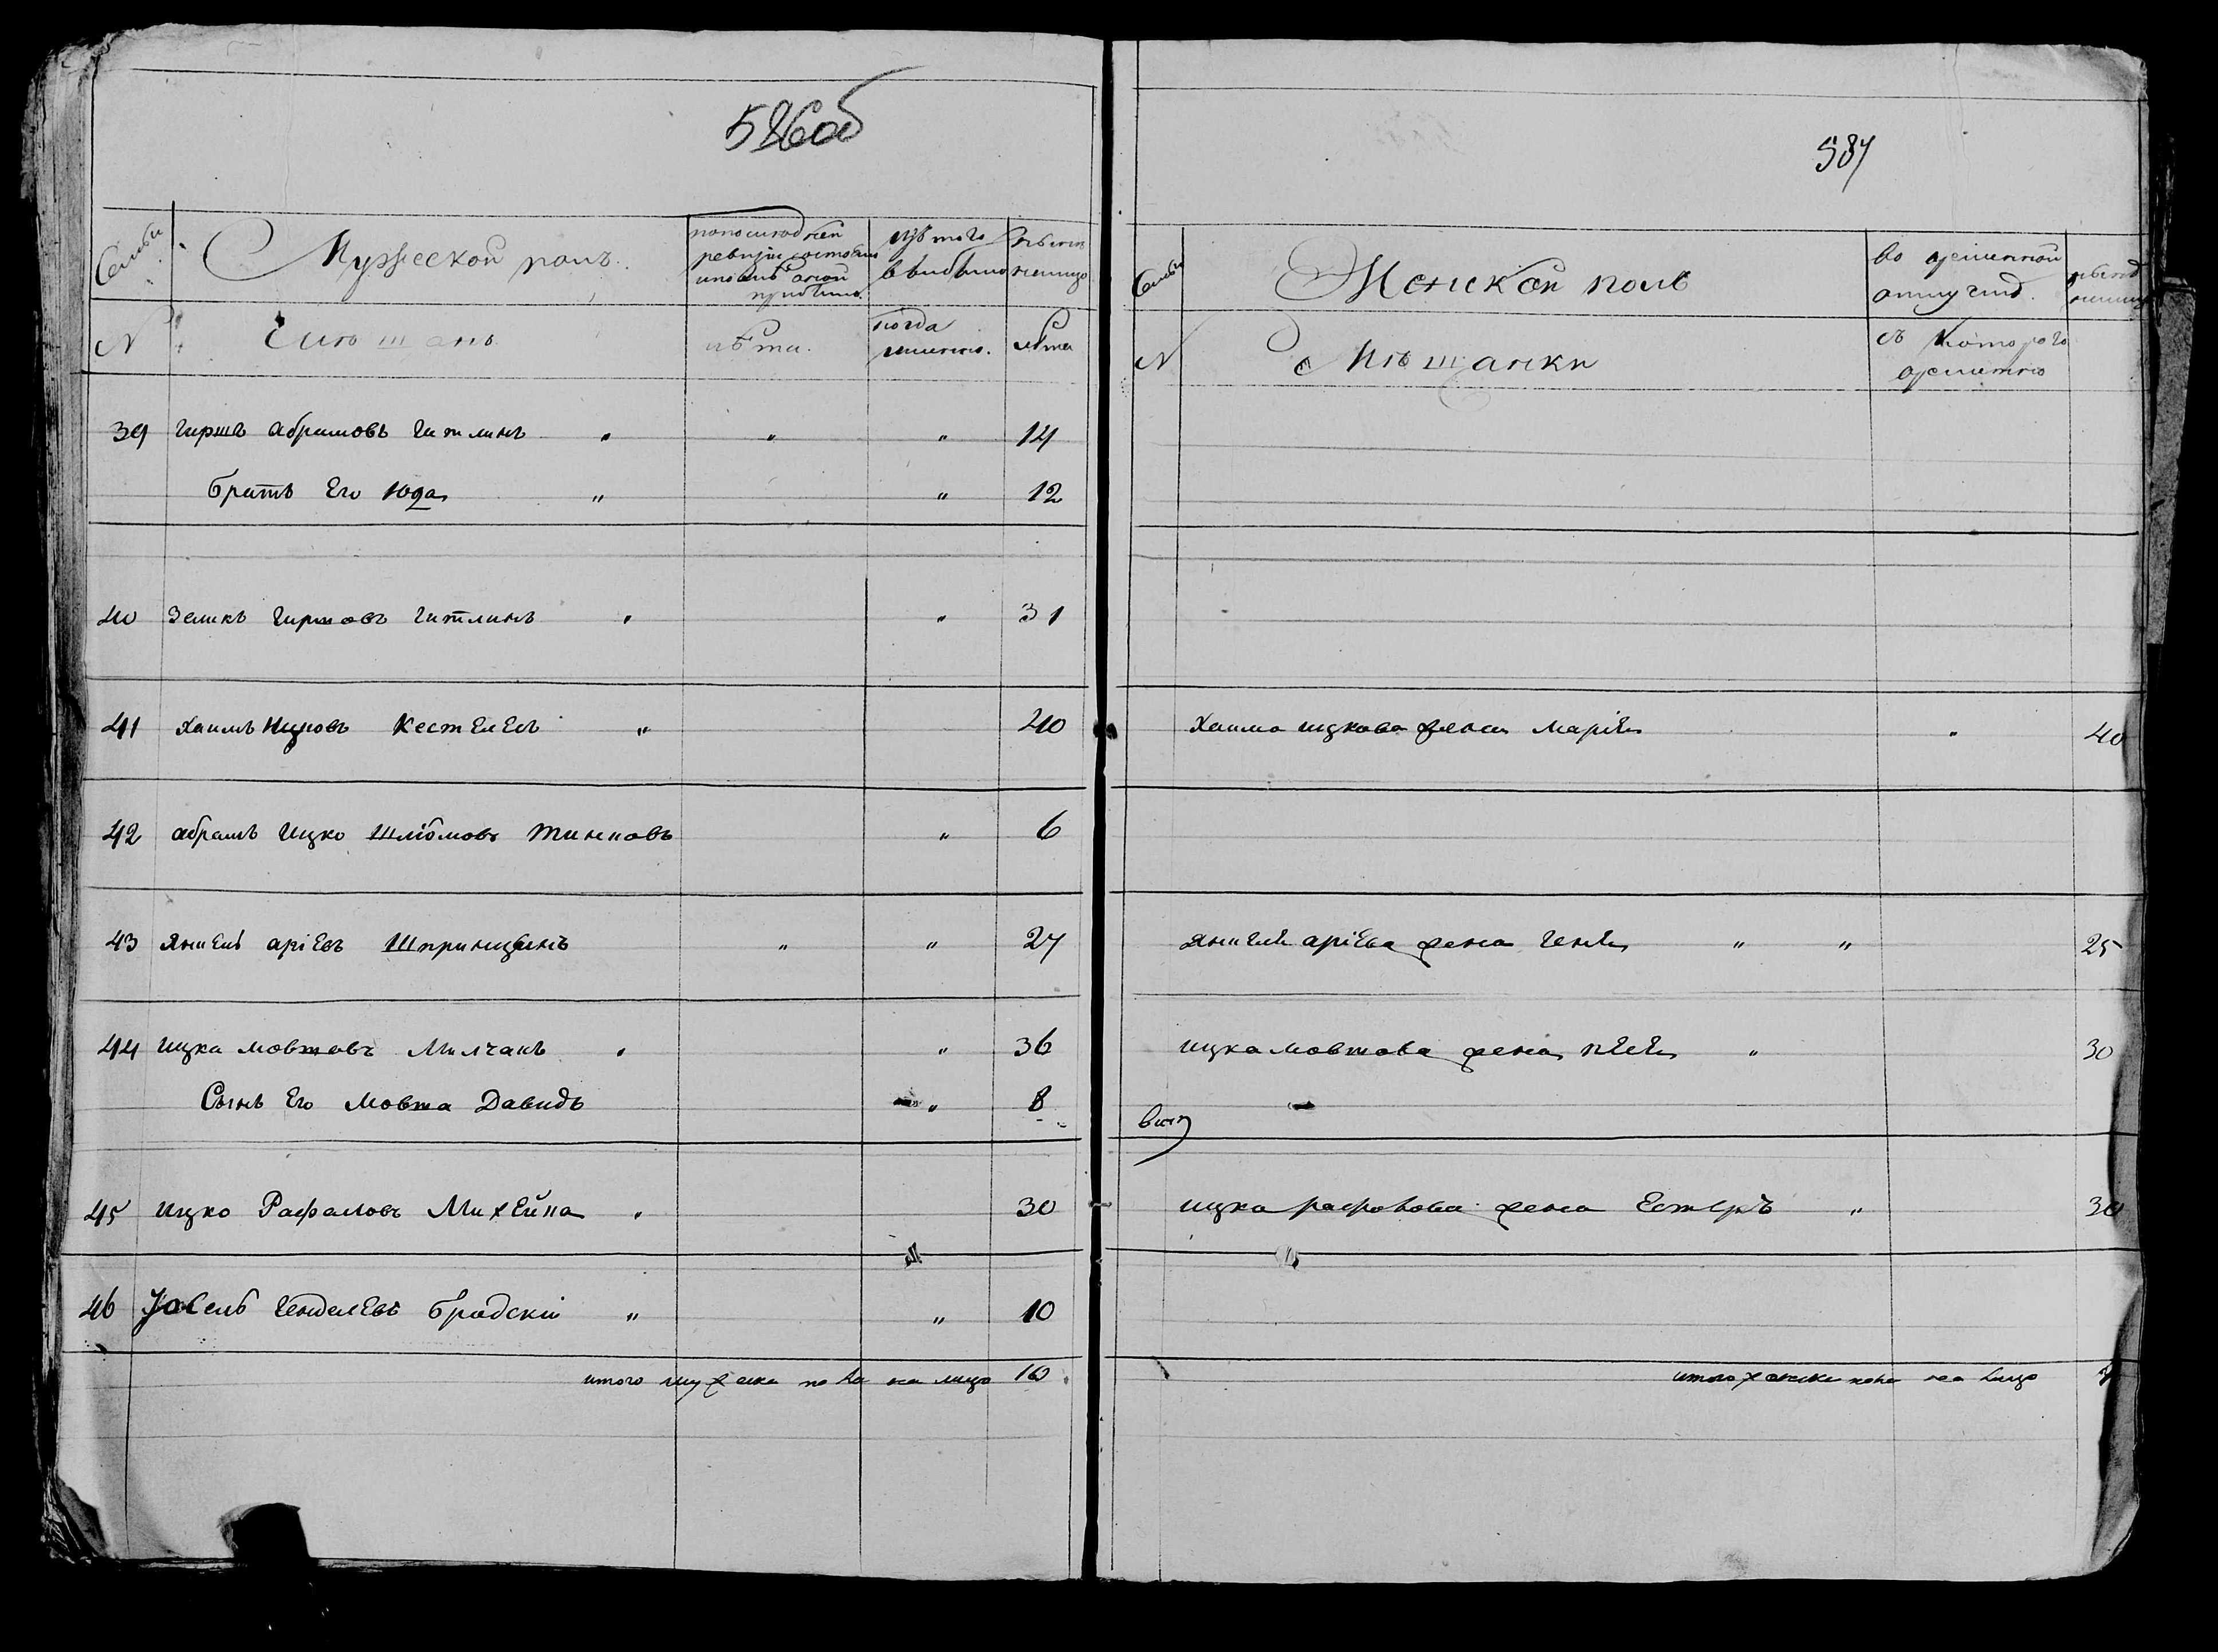 526об
Семьи
Мужеской полъ.
по последней ревизiи состояло и после оной прибыло.
изъ того выбыло
ныне на лицо
N
Мещанъ
лета.
когда именно.
лета
39 Гиршъ Абрамовъ Гитлинъ " " " 14
братъ Его Юда " " 12
40 Зеликъ Гиршовъ Гитлинъ " " 31
41 Хаимъ Ицковъ Кестелевъ " 40
42 Абрамъ Ицко Шліомовъ Тинповъ " 6
43 Янкель Аріевъ Шпринцинъ " " 27
44 Ицка Мовшовъ Милчанъ " " 36
Сынъ Его Мовша Давидъ " 8
45 Ицко Рафаловъ Михейпа " 30
46 Іосель Генделевъ Бродскій " " 10
итого мужеска пола на лицо 10
587
Семьи
Женской полъ
во временной отлучке.
ныне на лицо
N
Мѣщанки
съ котораго времени
Хаима Ицкова жена Марiя " 40
Янкеля Арiева жена Геня " " 25
Ицка Мовшова жена " 30
Ицка Рафалова жена Естеръ " 30
итого женска пола на лицо